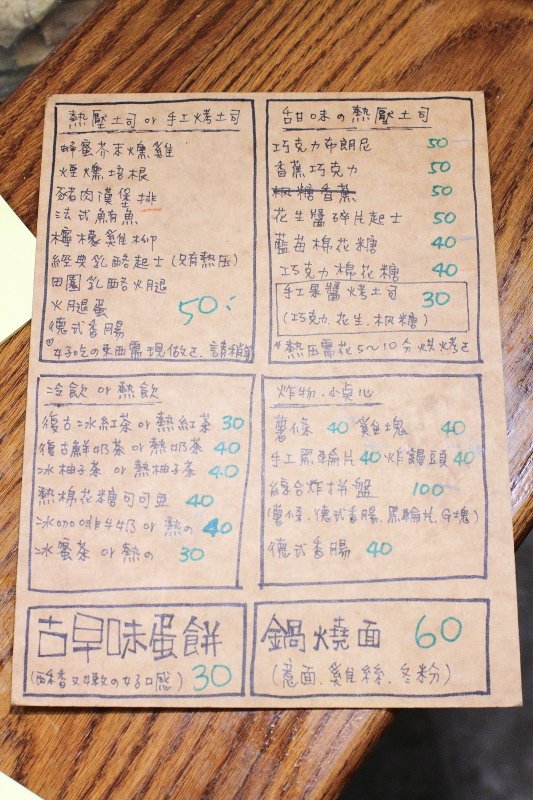 熱壓土司 or 手工烤土司
蜂蜜芥末燻雞
煙燻培根
豬肉漢堡排
法式鮪魚
檸檬雞柳
經典乳酪起士(只有熱压)
田園乳酪火腿
火腿蛋
德式香腸
50
好吃の東西需現做,請稍等
甜味の熱壓土司
巧克力布朗尼 50
香蕉巧克力 50
枫糖香蕉 50
花生醬碎片起士 50
藍莓棉花糖 40
巧克力棉花糖 40
手工果醬烤土司 30
(巧克力.花生.枫糖)
*熱压需花5~10分烘烤
冷飲 or 熱飲
復古冰紅茶 or 熱紅茶 30
復古鮮奶茶 or 熱奶茶 40
冰柚子茶 or 熱柚子茶 40
熱棉花糖可可亞 40
冰咖啡牛奶 or 熱の 40
冰蜜茶 or 熱の 30
炸物.小點心
薯條 40 雞塊 40
手工黑輪片 40 炸饅頭 40
綜合炸拼盤 100
(薯條.德式香腸.黑輪片.G塊)
德式香腸 40
古早味蛋餅
(酥香又嫩の好口感) 30
鍋燒面 60
(意面.雞絲.冬粉)